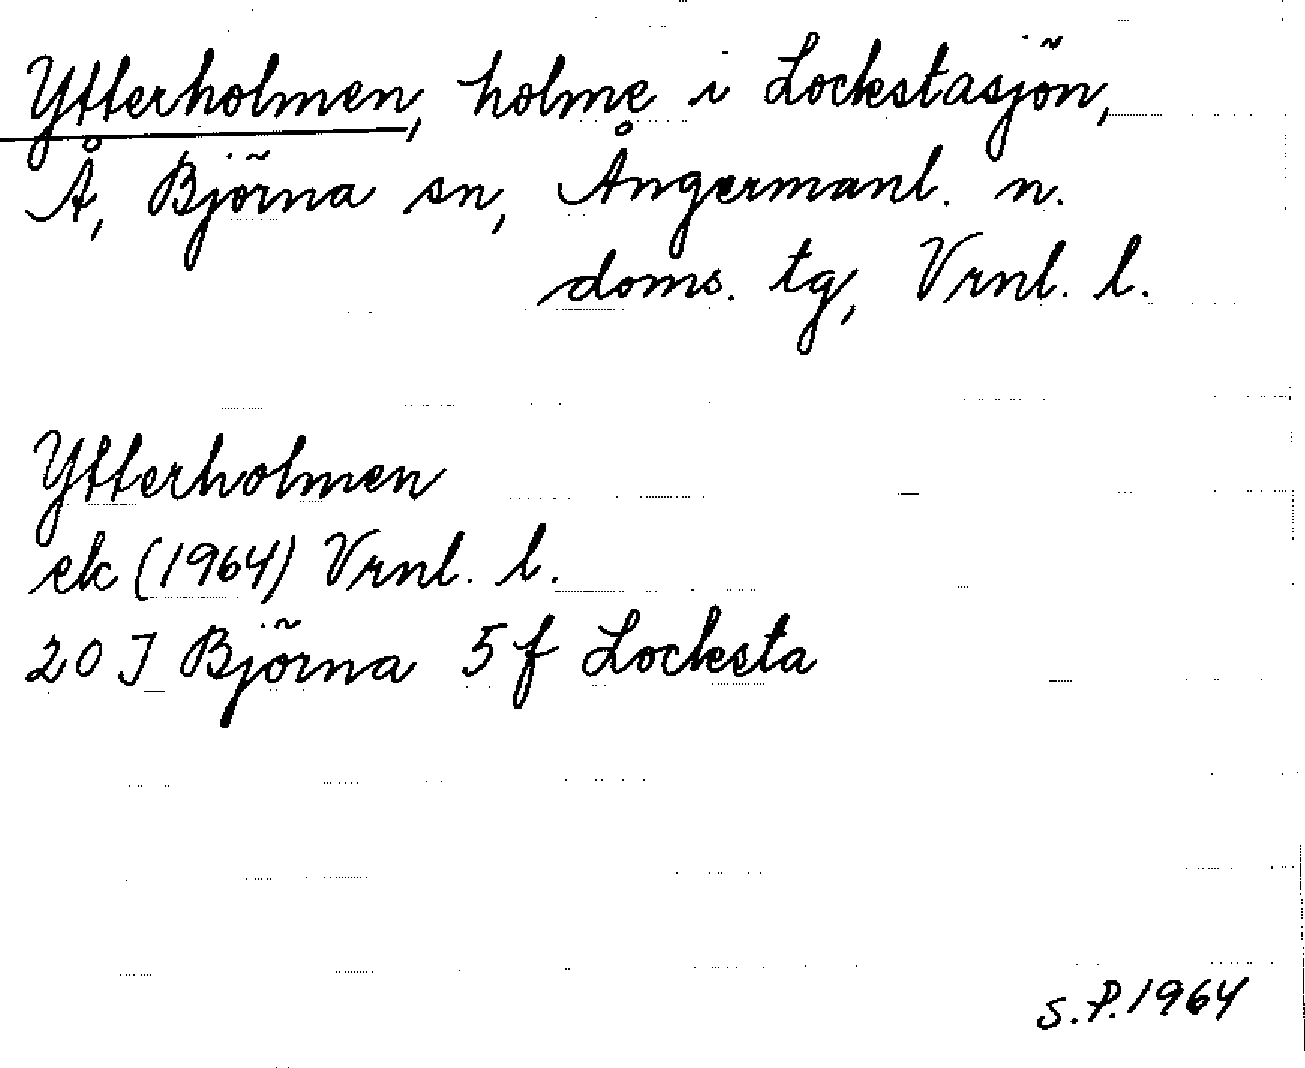 Ytterholmen, holme i Lockstasjön,
Å, Björna sn, Ångermanl. n.
doms. tg, Vrnl. l.
Ytterholmen
ek (1964) Vrnl. l.
20 J Björna 5 f Locksta
S.P. 1964